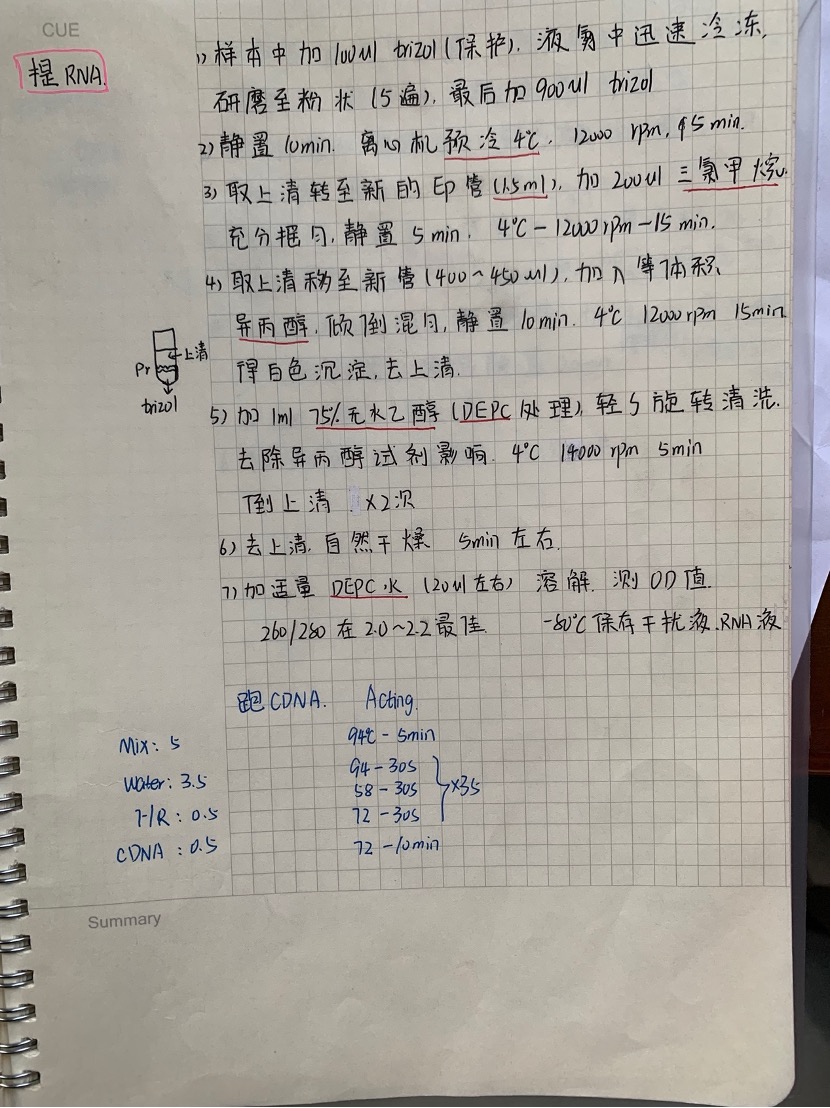 CUE
提RNA.
1) 样本中加100ul trizol(保护). 液氮中迅速冷冻.
研磨至粉状(5遍), 最后加900ul trizol
2) 静置10min. 离心机预冷4℃. 12000 rpm, 5min.
3) 取上清转至新的EP管(1.5ml), 加200ul三氯甲烷.
充分摇匀, 静置5min. 4℃-12000rpm-15min.
4) 取上清移至新管(400~450ul), 加入等体积
异丙醇, 倾倒混匀, 静置10min. 4℃ 12000rpm 15min
得白色沉淀, 去上清.
上清
Pr
trizol
5) 加1ml 75%无水乙醇(DEPC处理), 轻轻旋转清洗.
去除异丙醇试剂影响. 4℃ 14000rpm 5min
倒上清 ×2次
6) 去上清, 自然干燥 5min左右.
7) 加适量 DEPC水 (20ul左右) 溶解. 测OD值.
260/280在2.0~2.2最佳. -80℃保存干扰液.RNA液
跑CDNA. Acting.
Mix: 5
Water: 3.5
F/R: 0.5
CDNA: 0.5
94℃-5min
94-30s
58-30s
72-30s
×35
72-10min
Summary